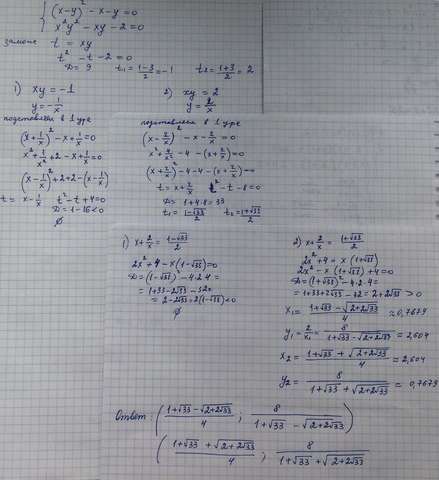 (x-y)² - x - y = 0
x²y² - xy - 2 = 0
замена t = xy
t² - t - 2 = 0
D = 9 t₁ = (1-3)/2 = -1 t₂ = (1+3)/2 = 2
1) xy = -1
y = -1/x
подставляем в 1 ур-е
(x + 1/x)² - x + 1/x = 0
x² + 1/x² + 2 - x + 1/x = 0
(x - 1/x)² + 2 + 2 - (x - 1/x)
t = x - 1/x t² - t + 4 = 0
D = 1 - 16 < 0
∅
2) xy = 2
y = 2/x
подставляем в 1 ур-е
(x - 2/x)² - x - 2/x = 0
x² + 4/x² - 4 - (x + 2/x) = 0
(x + 2/x)² - 4 - 4 - (x + 2/x) = 0
t = x + 2/x t² - t - 8 = 0
D = 1 + 4·8 = 33
t₁ = (1-√33)/2 t₂ = (1+√33)/2
1) x + 2/x = (1-√33)/2
2x² + 4 - x(1-√33) = 0
D = (1-√33)² - 4·2·4 =
= 1 + 33 - 2√33 - 32 =
= 2 - 2√33 = 2(1-√33) < 0
∅
2) x + 2/x = (1+√33)/2
2x² + 4 = x(1+√33)
2x² - x(1+√33) + 4 = 0
D = (1+√33)² - 4·2·4 =
= 1 + 33 + 2√33 - 32 = 2 + 2√33 > 0
x₁ = (1+√33 - √(2+2√33))/4 ≈ 0,7679
y₁ = 2/x₁ = 8/(1+√33 - √(2+2√33)) = 2,604
x₂ = (1+√33 + √(2+2√33))/4 = 2,604
y₂ = 8/(1+√33 + √(2+2√33)) ≈ 0,7679
Ответ: ((1+√33 - √(2+2√33))/4 ; 8/(1+√33 - √(2+2√33)))
((1+√33 + √(2+2√33))/4 ; 8/(1+√33 + √(2+2√33)))